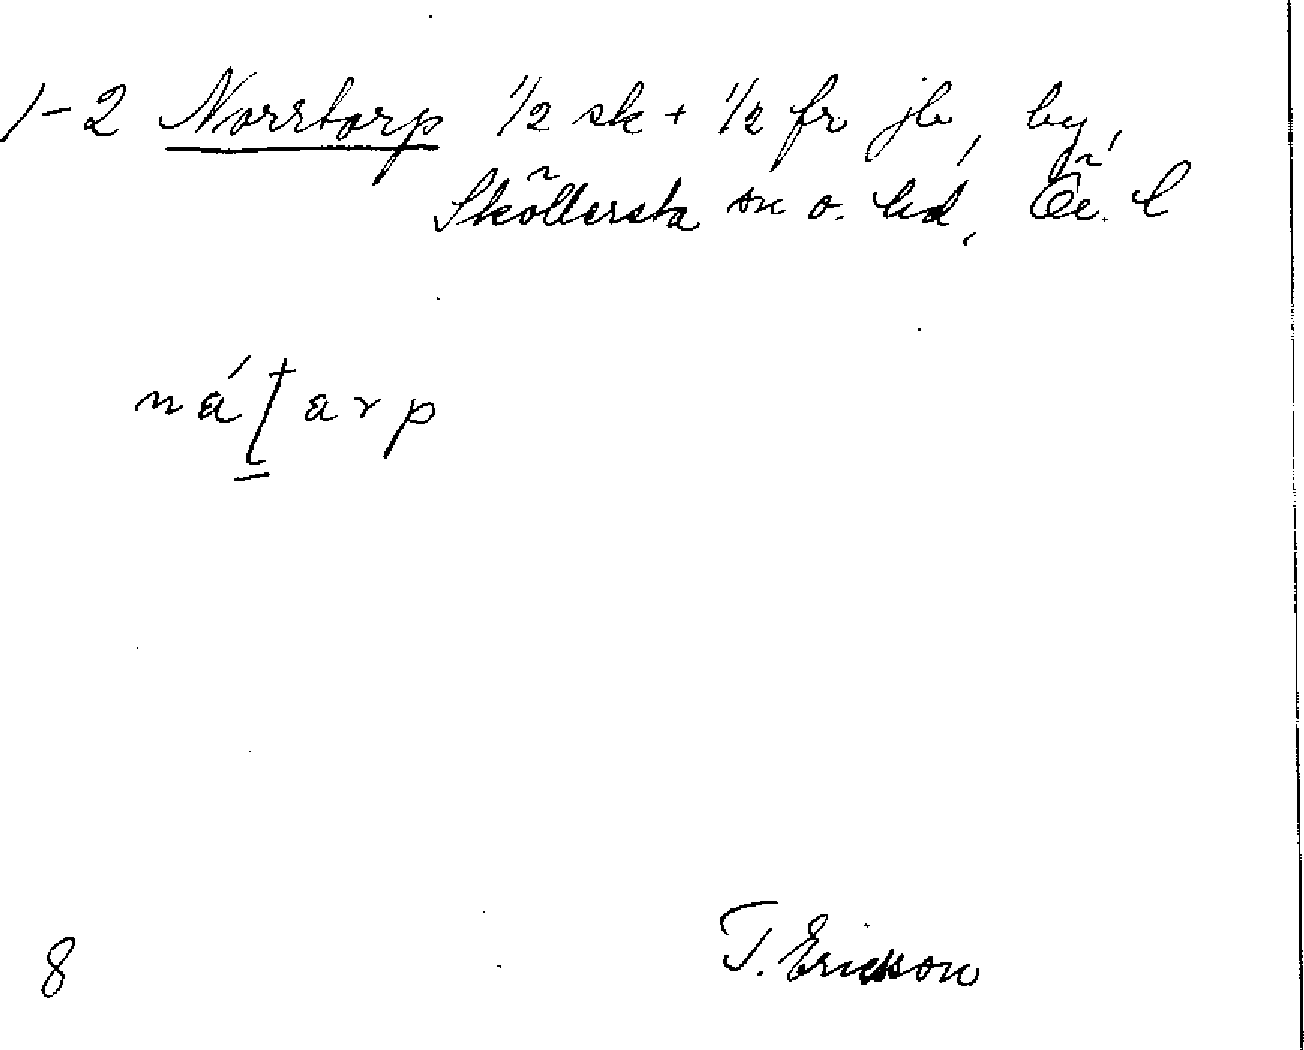 1-2 Norrtorp 1/2 sk + 1/2 fr jb, by,
Sköllersta sn o. hd, Ör. l
8
T. Ericsson